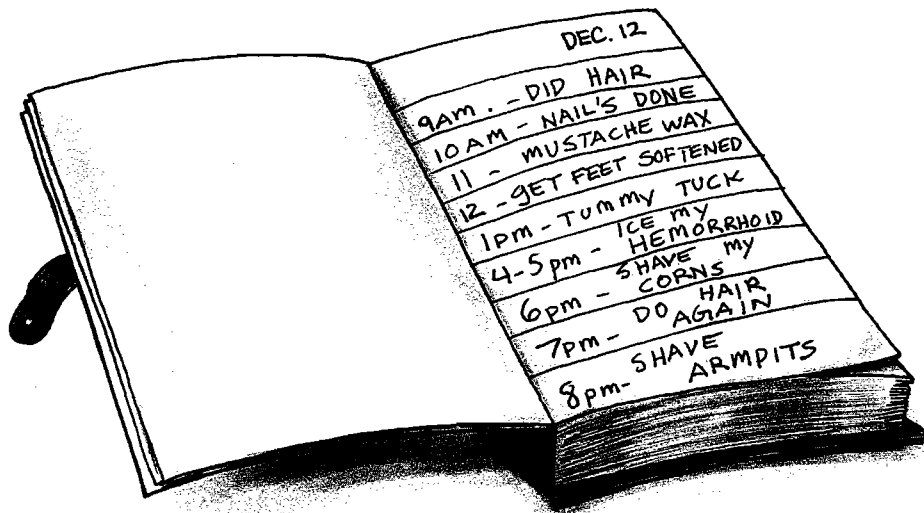 DEC. 12
9AM. - DID HAIR
10 AM - NAIL'S DONE
11 - MUSTACHE WAX
12 - gET FEET SOFTENED
1pm - TUMMY TUCK
4-5pm - ICE my
HEMORRHOID
6pm - SHAVE my
CORNS
7pm - DO HAIR
AGAIN
8pm- SHAVE
ARMPITS